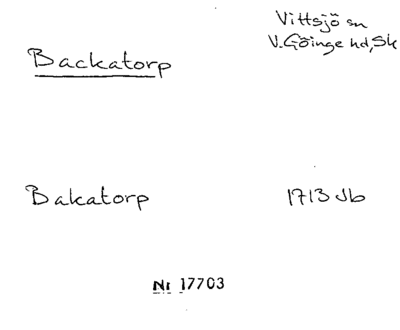 Vittsjö sn
Backatorp
V.Göinge hd, Sk
Bakatorp
1713 Jb
Nr 17703